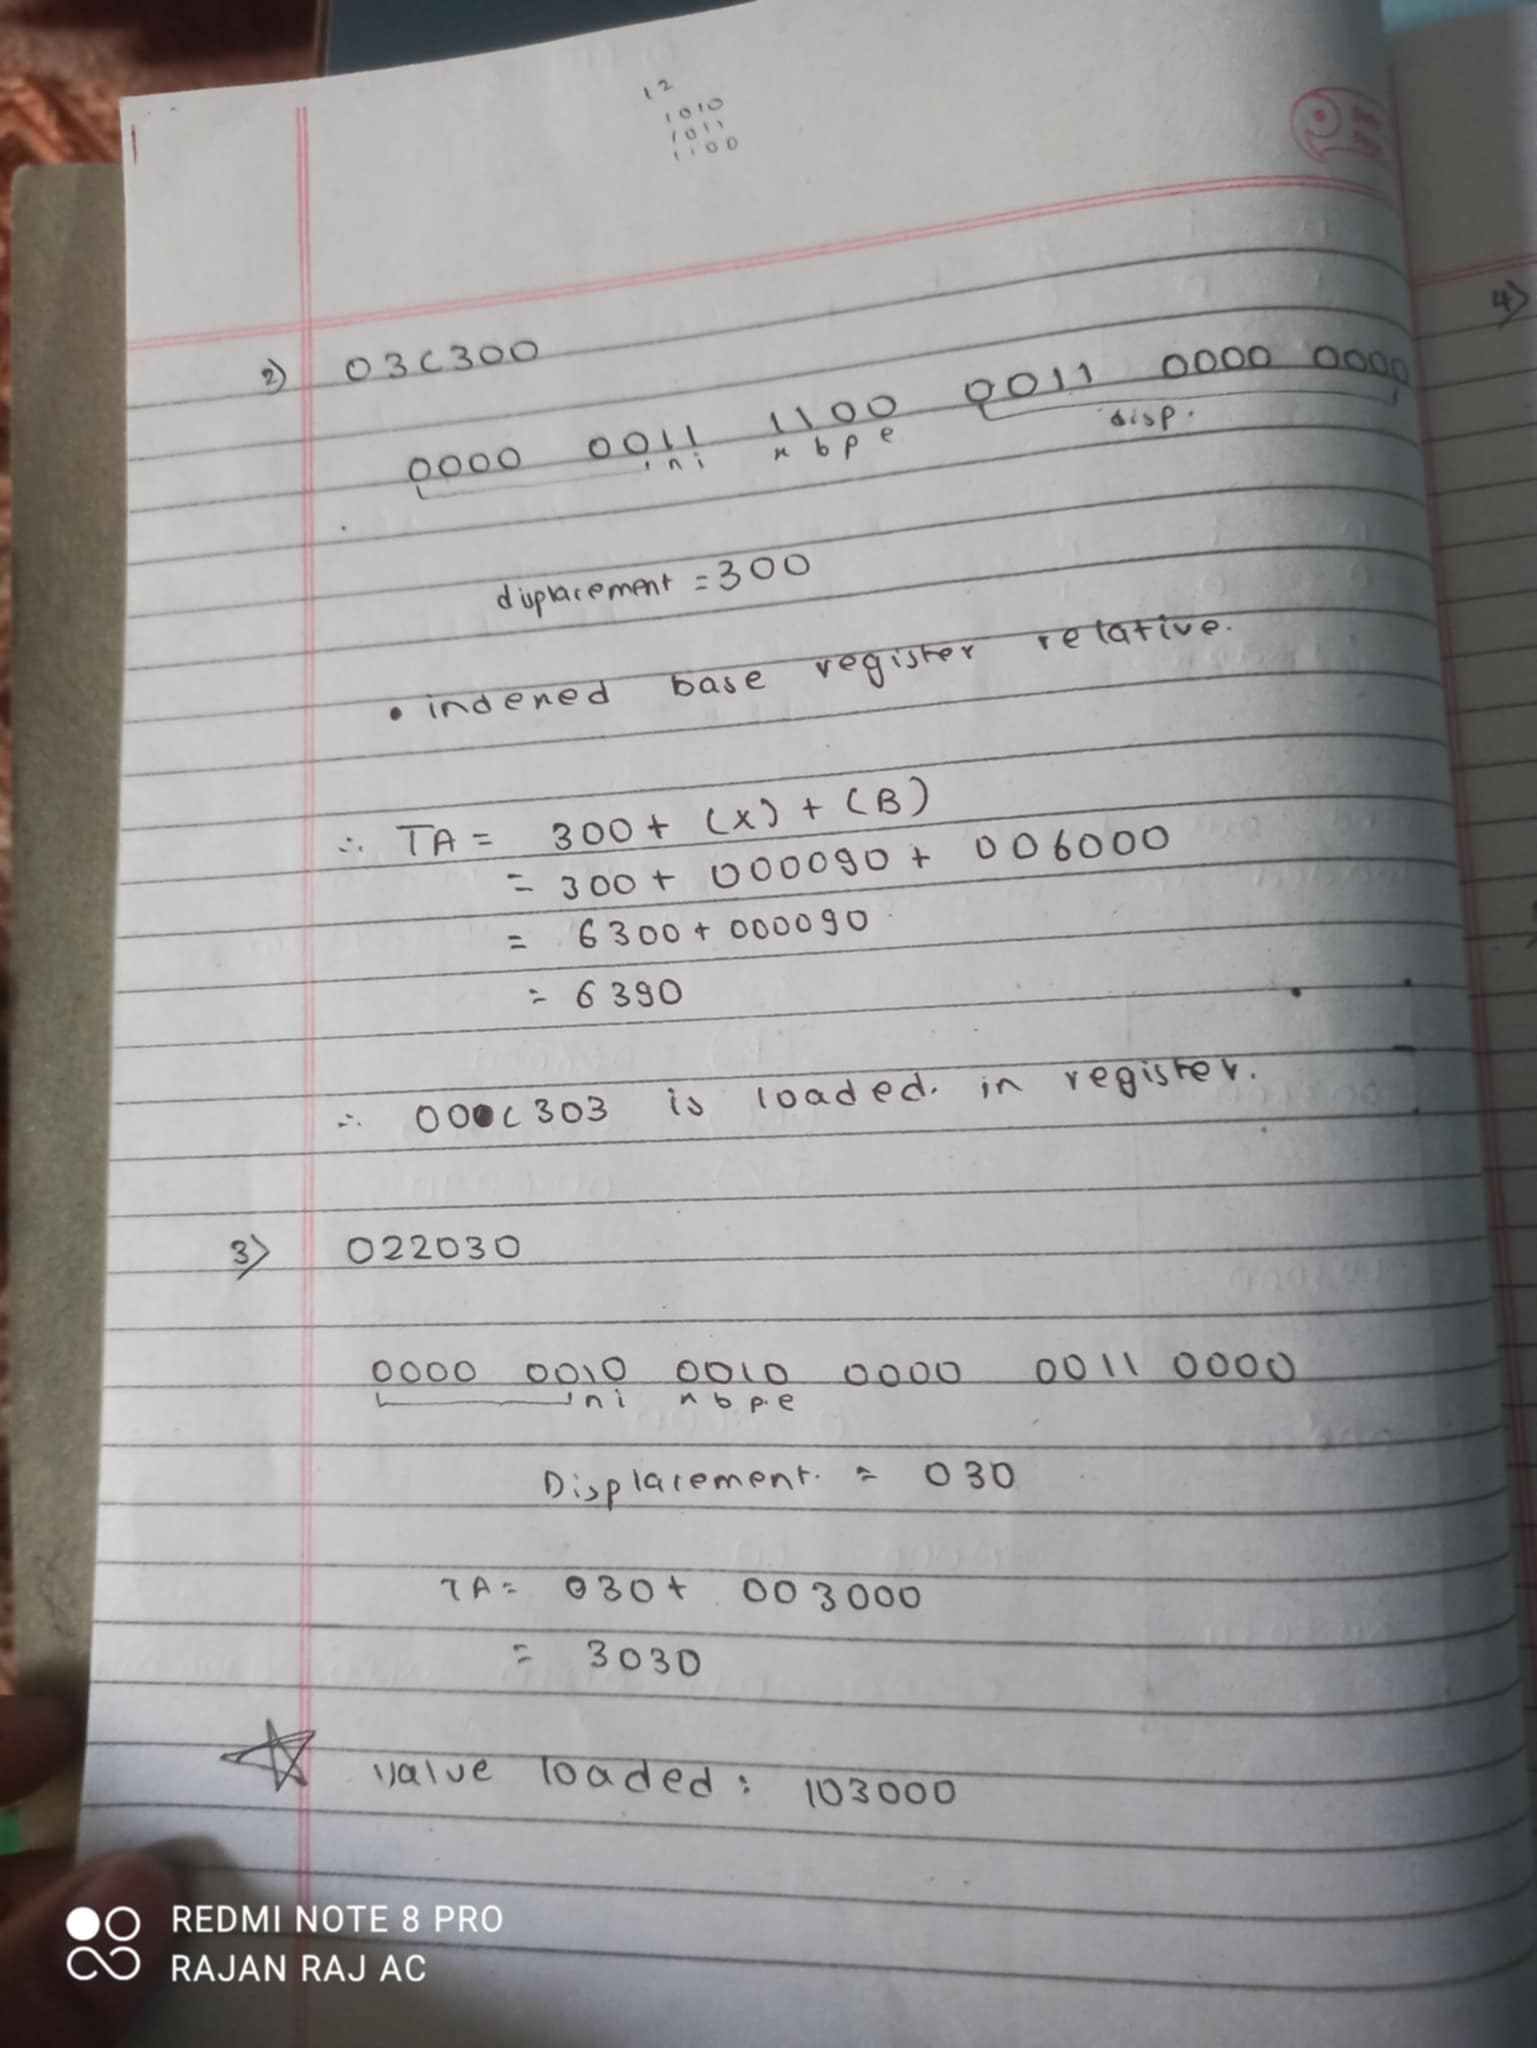 12
1010
1011
1100
4)
2) 03C300
0000 0011 1100 0011 0000 0000
n i x b p e disp.
displacement = 300
• indexed base register relative.
∴ TA = 300 + (X) + (B)
= 300 + 000090 + 006000
= 6300 + 000090
= 6390
∴ 000C303 is loaded. in register.
3) 022030
0000 0010 0010 0000 0011 0000
n i x b p.e
Displacement. = 030
TA = 030 + 003000
= 3030
value loaded : 103000
REDMI NOTE 8 PRO
RAJAN RAJ AC